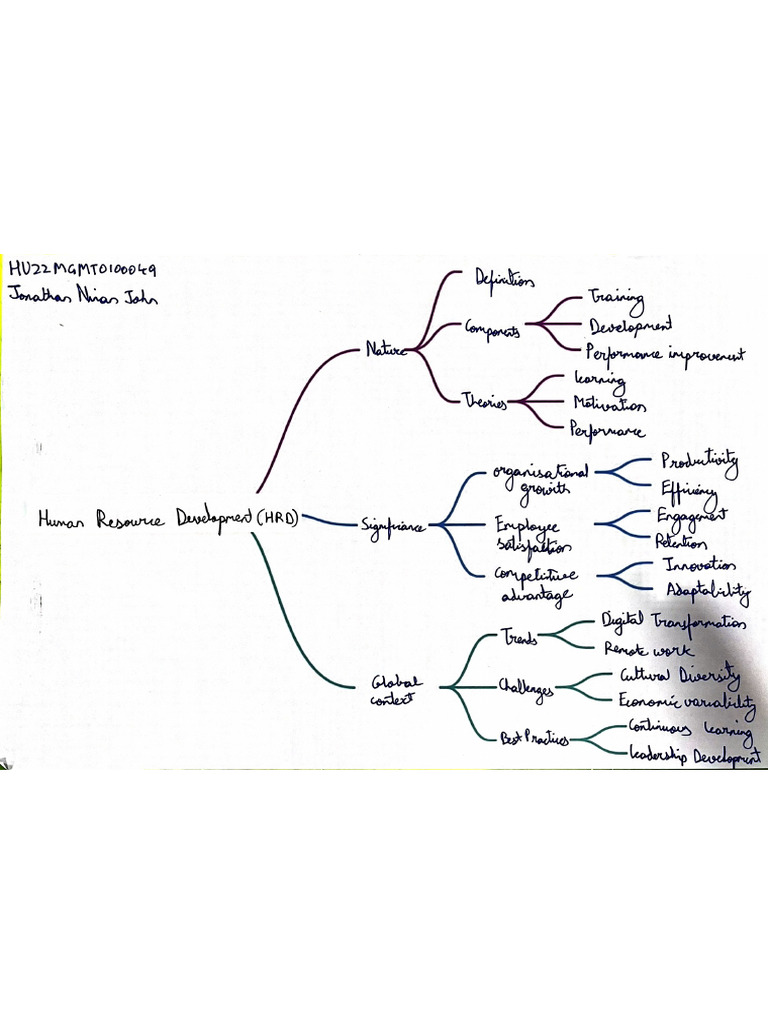 HU22MGMT0100049
Jonathan Ninan John
Human Resource Development (HRD)
Nature
Definition
Components
Training
Development
Performance improvement
Theories
Learning
Motivation
Performance
Significance
Organisational
growth
Productivity
Efficiency
Employee
satisfaction
Engagement
Retention
Competitive
advantage
Innovation
Adaptability
Global
context
Trends
Digital Transformation
Remote work
Challenges
Cultural Diversity
Economic variability
Best Practices
Continuous Learning
Leadership Development